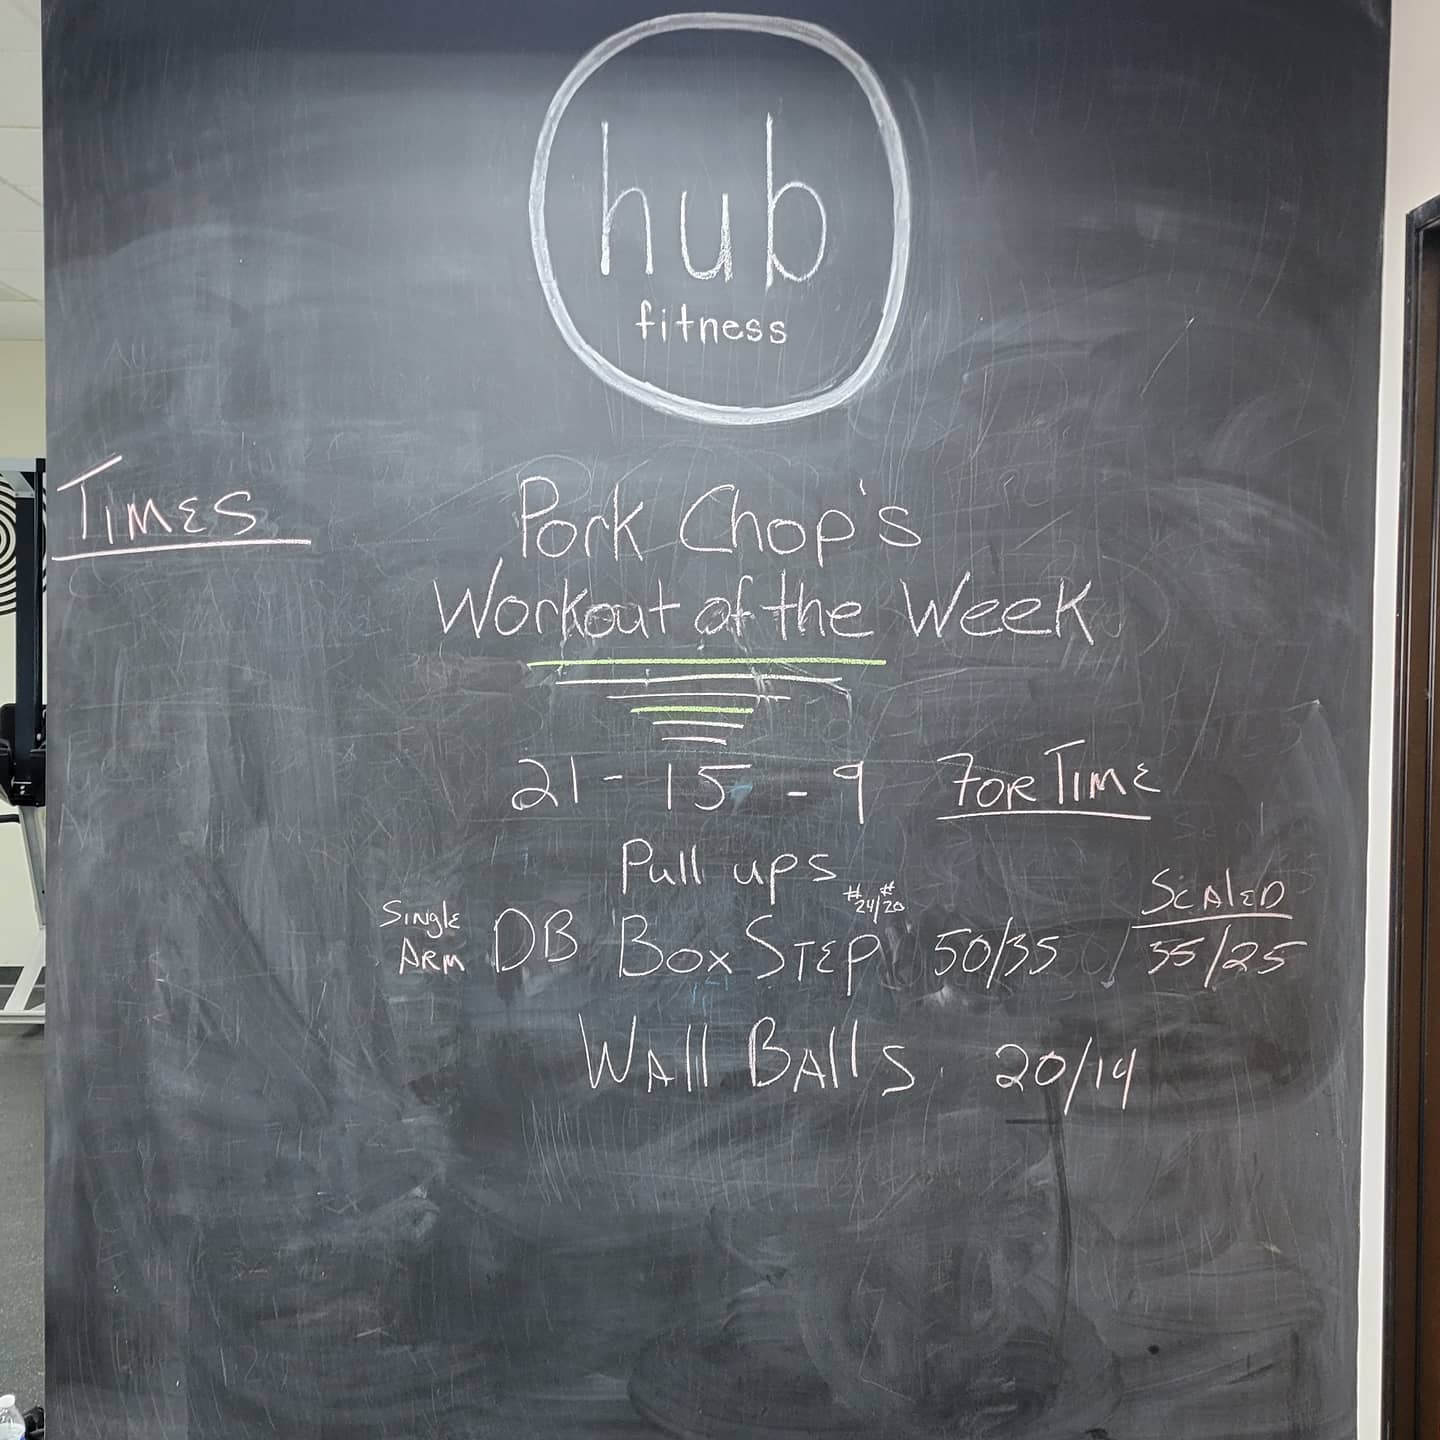 hub
fitness
TIMES
Pork Chop's
Workout of the Week
21 - 15 - 9 FOR TIME
Pull ups
#24/#20
SCALED
SINGLE ARM DB BOX STEP 50/35 35/25
WALL BALLS 20/14